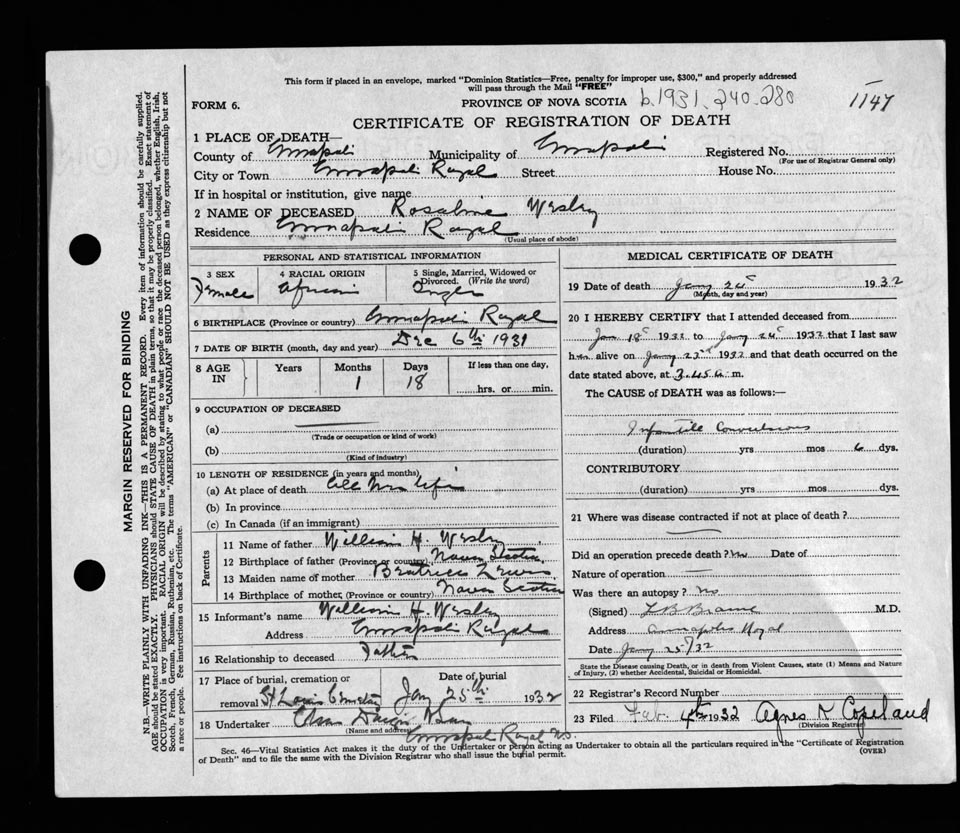 This form if placed in an envelope, marked "Dominion Statistics—Free, penalty for improper use, $300," and properly addressed
will pass through the Mail "FREE"
FORM 6. PROVINCE OF NOVA SCOTIA b.1931.240.280 1147
CERTIFICATE OF REGISTRATION OF DEATH
1 PLACE OF DEATH—
County of Annapolis Municipality of Annapolis Registered No.
(For use of Registrar General only)
City or Town Annapolis Royal Street House No.
If in hospital or institution, give name
2 NAME OF DECEASED Rosaline Wesley
Residence Annapolis Royal
(Usual place of abode)
PERSONAL AND STATISTICAL INFORMATION
3 SEX 4 RACIAL ORIGIN 5 Single, Married, Widowed or Divorced. (Write the word)
Female African Single
6 BIRTHPLACE (Province or country) Annapolis Royal
7 DATE OF BIRTH (month, day and year) Dec 6th 1931
8 AGE IN Years Months Days If less than one day,
1 18 hrs. or min.
9 OCCUPATION OF DECEASED
(a)
(Trade or occupation or kind of work)
(b)
(Kind of industry)
10 LENGTH OF RESIDENCE (in years and months)
(a) At place of death all her life
(b) In province
(c) In Canada (if an immigrant)
Parents
11 Name of father William H. Wesley
12 Birthplace of father (Province or country) Nova Scotia
13 Maiden name of mother Beatrice Lewis
14 Birthplace of mother (Province or country) Nova Scotia
15 Informant's name William H. Wesley
Address Annapolis Royal
16 Relationship to deceased Father
17 Place of burial, cremation or removal Date of burial
St Louis Cemetery Jany 25th 1932
18 Undertaker
(Name and address) Annapolis Royal N.S.
MEDICAL CERTIFICATE OF DEATH
19 Date of death Jany 24th 1932
(Month, day and year)
20 I HEREBY CERTIFY that I attended deceased from
Jan 18th 1932 to Jany 24th 1932 that I last saw
her alive on Jany 23rd 1932 and that death occurred on the
date stated above, at 3.45 a. m.
The CAUSE of DEATH was as follows:—
Infantile Convulsions
(duration) yrs mos 6 dys.
CONTRIBUTORY
(duration) yrs mos dys.
21 Where was disease contracted if not at place of death?
Did an operation precede death? No Date of
Nature of operation
Was there an autopsy? No
(Signed) L B Braine M.D.
Address Annapolis Royal
Date Jany 25/32
State the Disease causing Death, or in death from Violent Causes, state (1) Means and Nature
of Injury, (2) whether Accidental, Suicidal or Homicidal.
22 Registrar's Record Number
23 Filed Feb. 4th 1932 Agnes N Copeland
(Division Registrar)
Sec. 46—Vital Statistics Act makes it the duty of the Undertaker or person acting as Undertaker to obtain all the particulars required in the "Certificate of Registration
of Death" and to file the same with the Division Registrar who shall issue the burial permit. (OVER)
MARGIN RESERVED FOR BINDING
N.B.—WRITE PLAINLY WITH UNFADING INK—THIS IS A PERMANENT RECORD. Every item of information should be carefully supplied.
AGE should be stated EXACTLY. PHYSICIANS should STATE CAUSE OF DEATH in plain terms, so that it may be properly classified. Exact statement of
OCCUPATION is very important. RACIAL ORIGIN will be described by stating to what people or race the deceased person belonged, whether English, Irish,
Scotch, French, German, Russian, Ruthenian, etc. The terms "AMERICAN" or "CANADIAN" SHOULD NOT BE USED as they express citizenship but not
a race or people. See instructions on back of Certificate.